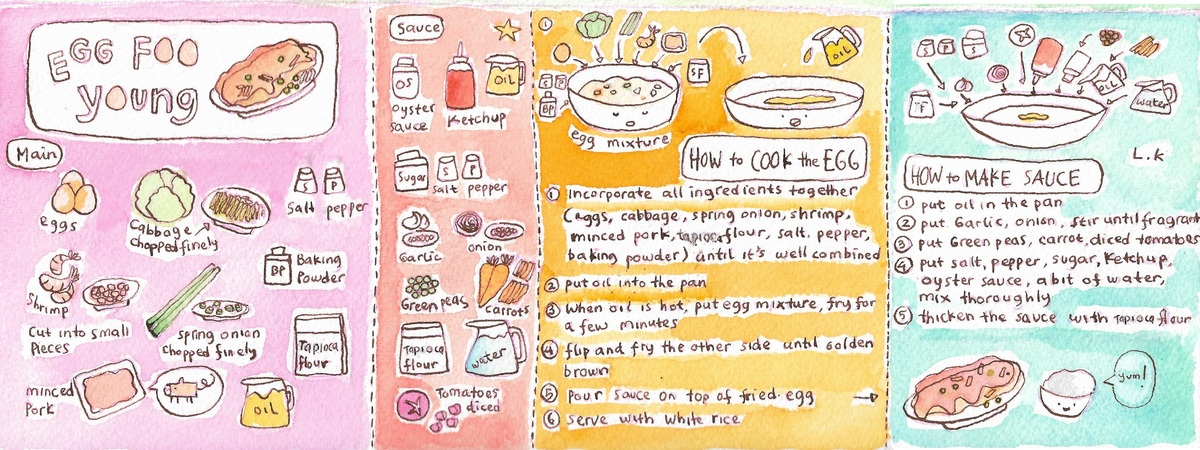 EGG FOO
young
Main
eggs
Cabbage
chopped finely
Salt pepper
Shrimp
Cut into small
Pieces
spring onion
chopped finely
BP
Baking
Powder
Tapioca
flour
minced
Pork
OIL
Sauce
OS
oyster
sauce
Ketchup
OIL
Sugar
S
P
salt pepper
Garlic
onion
Green peas
carrots
Tapioca
flour
water
Tomatoes
diced
1
S
P
BP
SF
OIL
egg mixture
HOW to COOK the EGG
1 Incorporate all ingredients together
(eggs, cabbage, spring onion, shrimp,
minced pork, tapioca flour, salt, pepper,
baking powder) until it's well combined
2 put oil into the pan
3 When oil is hot, put egg mixture, fry for
a few minutes
4 flip and fry the other side until golden
brown
5 Pour sauce on top of fried egg
6 serve with white rice
S
P
S
TF
OIL
water
L.K
HOW to MAKE SAUCE
1 put oil in the pan
2 put Garlic, onion, stir until fragrant
3 put Green peas, carrot, diced tomatoes
4 put salt, pepper, sugar, Ketchup,
oyster sauce, a bit of water,
mix thoroughly
5 thicken the sauce with Tapioca flour
yum!